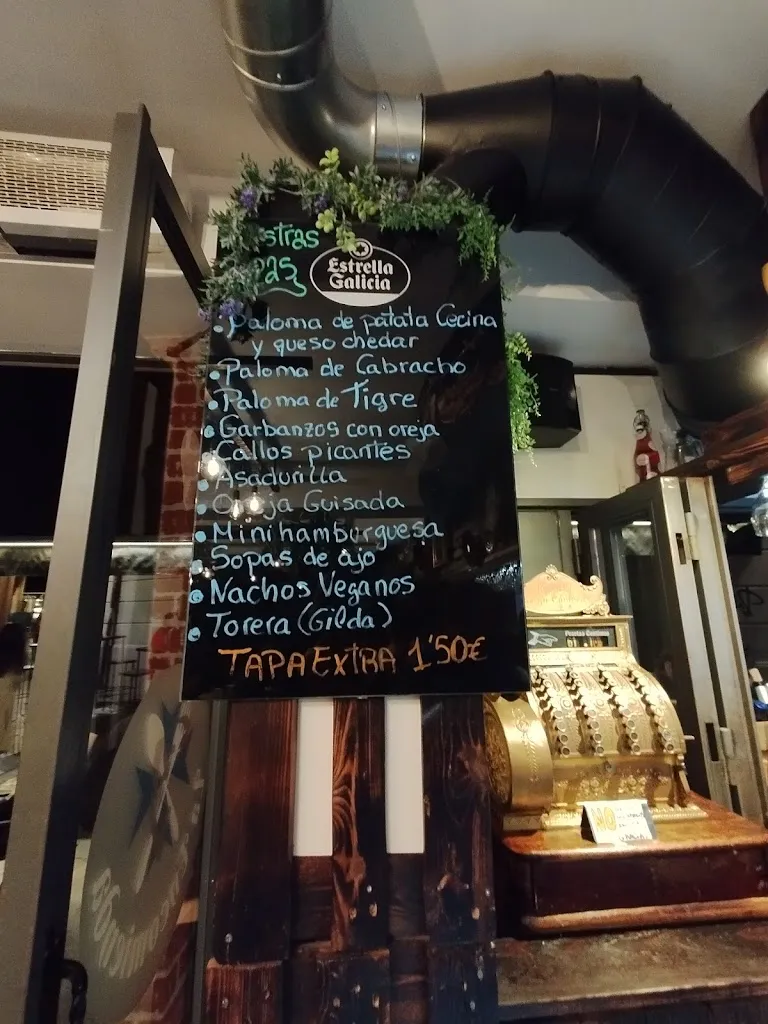 Estrella
Galicia
• Paloma de patata Cecina
y queso chedar
• Paloma de Cabracho
• Paloma de Tigre
• Garbanzos con oreja
• Callos picantes
• Asadurilla
• Oreja Guisada
• Minihamburguesa
• Sopas de ajo
• Nachos Veganos
• Torera (Gilda)
TAPA EXTRA 1'50€